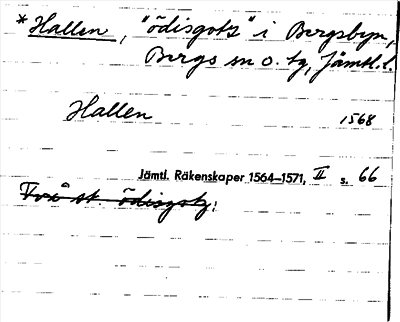 *Hallen, "ödisgotz" i Bergsbyn,
Bergs sn o. tg, Jämtl. l.
Hallen 1568
Jämtl. Räkenskaper 1564–1571, II s. 66
Två st. ödisgotz.